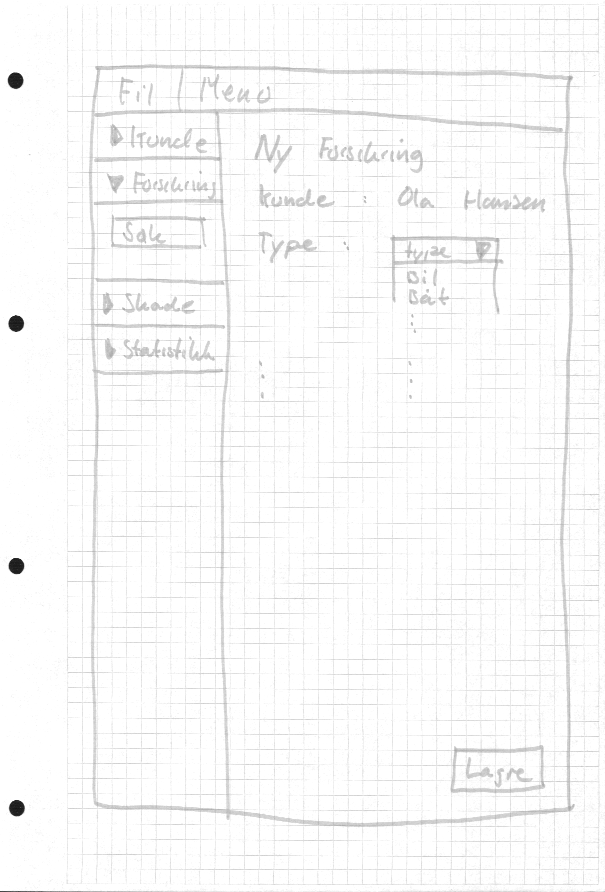 Fil | Meny
Kunde
Forsikring
Søk
Skade
Statistikk
Ny Forsikring
Kunde : Ola Hansen
Type :
type
Bil
Båt